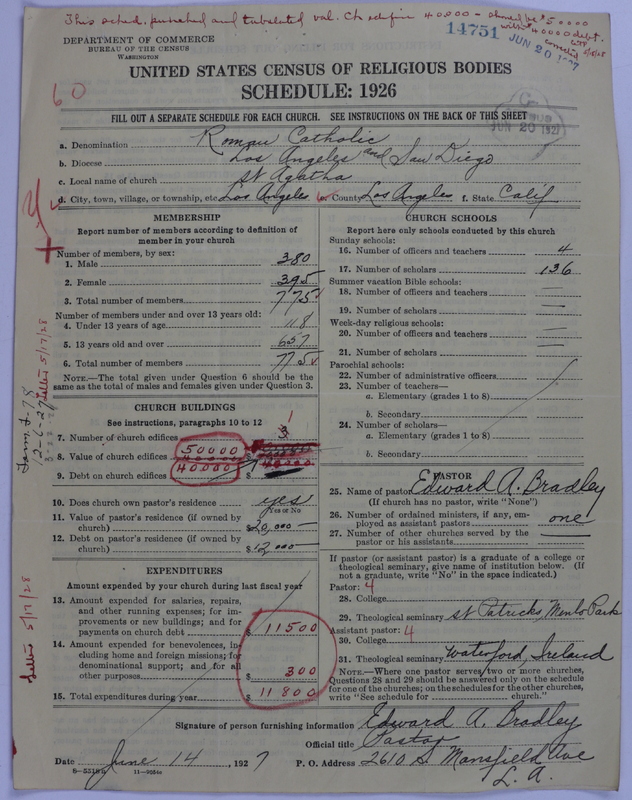 This sched. punched and tabulated val. Ch edifice 40000 - should be $50000
with $40000 debt.
14751 JUN 20 1927
DEPARTMENT OF COMMERCE
BUREAU OF THE CENSUS
WASHINGTON
UNITED STATES CENSUS OF RELIGIOUS BODIES
SCHEDULE: 1926
60
JUN 20 1927
FILL OUT A SEPARATE SCHEDULE FOR EACH CHURCH. SEE INSTRUCTIONS ON THE BACK OF THIS SHEET
a. Denomination Roman Catholic
b. Diocese Los Angeles and San Diego
c. Local name of church St Agatha
d. City, town, village, or township, etc. Los Angeles e. County Los Angeles f. State Calif
MEMBERSHIP
Report number of members according to definition of
member in your church
Number of members, by sex:
1. Male 380
2. Female 395
3. Total number of members 775
Number of members under and over 13 years old:
4. Under 13 years of age 118
5. 13 years old and over 657
6. Total number of members 775
NOTE.—The total given under Question 6 should be the
same as the total of males and females given under Question 3.
CHURCH BUILDINGS
See instructions, paragraphs 10 to 12
7. Number of church edifices 1
8. Value of church edifices 50000
9. Debt on church edifices 40000 $
10. Does church own pastor's residence yes
Yes or No
11. Value of pastor's residence (if owned by
church) $20,000
12. Debt on pastor's residence (if owned by
church) $12,000
EXPENDITURES
Amount expended by church during last fiscal year
13. Amount expended for salaries, repairs,
and other running expenses; for im-
provements or new buildings; and for
payments on church debt $11500
14. Amount expended for benevolences, in-
cluding home and foreign missions; for
denominational support; and for all
other purposes $300
15. Total expenditures during year $11800
CHURCH SCHOOLS
Report here only schools conducted by this church
Sunday schools:
16. Number of officers and teachers 4
17. Number of scholars 136
Summer vacation Bible schools:
18. Number of officers and teachers —
19. Number of scholars —
Week-day religious schools:
20. Number of officers and teachers —
21. Number of scholars —
Parochial schools:
22. Number of administrative officers
23. Number of teachers—
a. Elementary (grades 1 to 8)
b. Secondary
24. Number of scholars—
a. Elementary (grades 1 to 8)
b. Secondary
PASTOR
25. Name of pastor Edward A. Bradley
(If church has no pastor, write "None")
26. Number of ordained ministers, if any, em-
ployed as assistant pastors one
27. Number of other churches served by the
pastor or his assistants —
If pastor (or assistant pastor) is a graduate of a college or
theological seminary, give name of institution below. (If
not a graduate, write "No" in the space indicated.)
Pastor: 4
28. College
29. Theological seminary St Patricks, Menlo Park
Assistant pastor: 4
30. College
31. Theological seminary Waterford, Ireland
NOTE.—Where one pastor serves two or more churches,
Questions 28 and 29 should be answered only on the schedule
for one of the churches; on the schedules for the other churches,
write "See schedule for church."
Signature of person furnishing information Edward A. Bradley
Official title Pastor
Date June 14, 1927 P. O. Address 2610 S. Mansfield Ave
L. A.
Letter 5/17/28
Letter 5/17/28